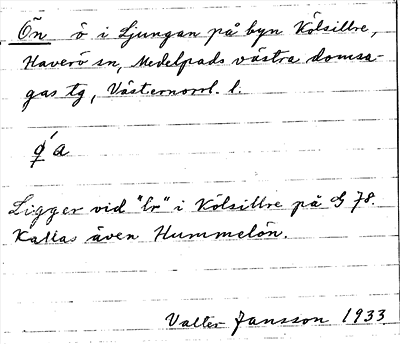 Ön ö i Ljungan på byn Kölsillre,
Haverö sn, Medelpads västra domsa-
gas tg, Västernorrl. l.
Ligger vid "lr" i Kölsillre på G 78.
Kallas även Hummelön.
Valter Jansson 1933